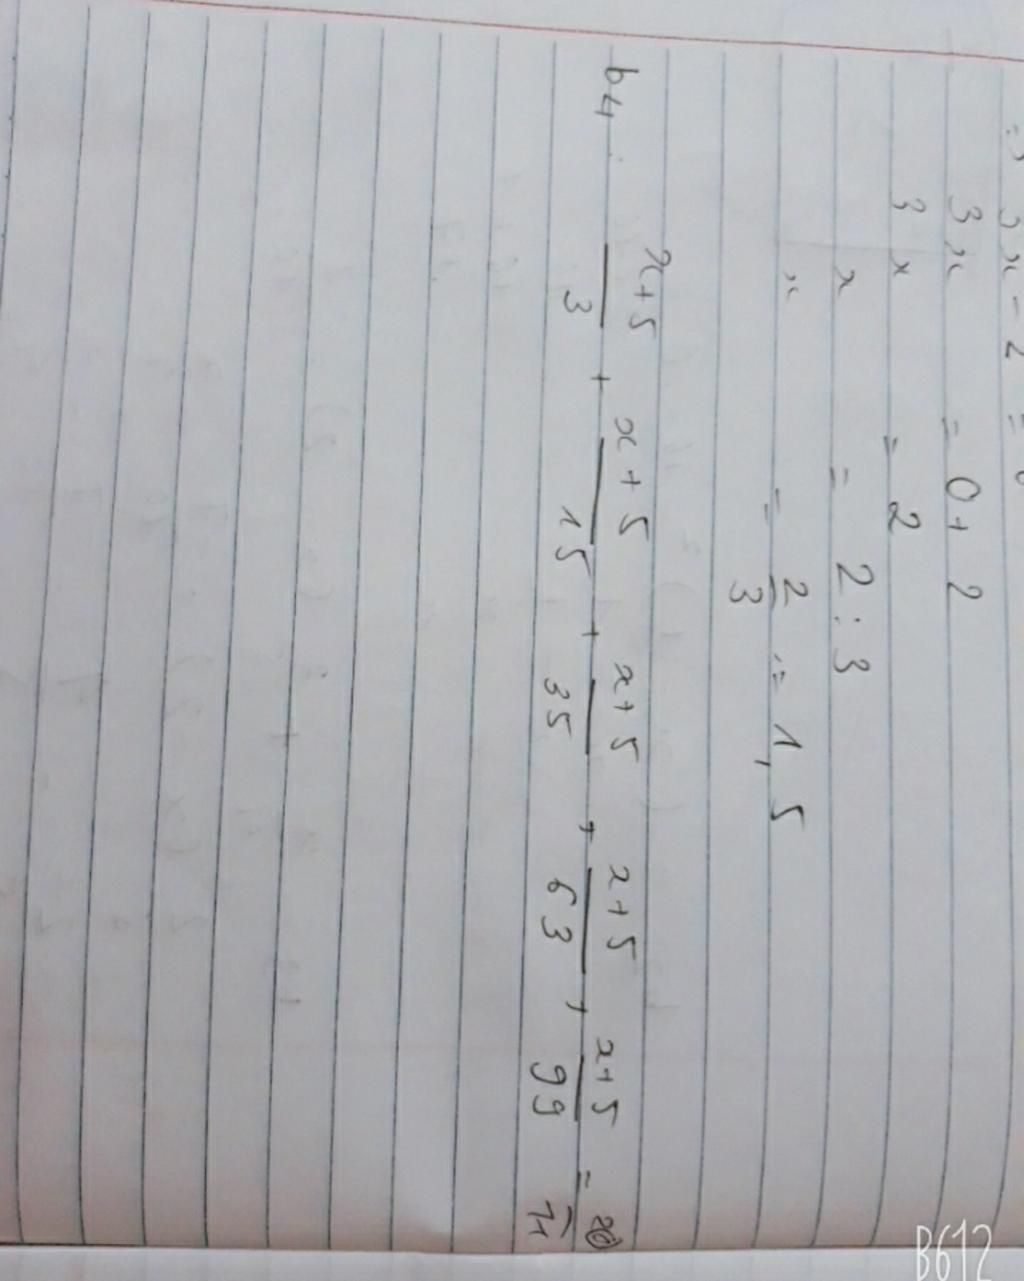 => 3x - 2 = 0
3x = 0 + 2
3x = 2
x = 2 : 3
x = 2/3 = 1,5
b4. x+5/3 + x+5/15 + x+5/35 + x+5/63 + x+5/99 =
B612